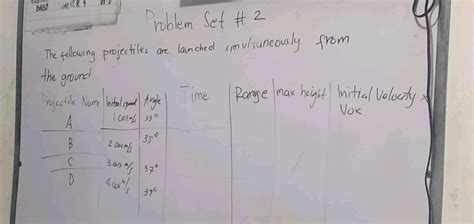 Problem Set # 2
The following projectiles are launched simultaneously from
the ground
Projectile Name Initial speed Angle Time Range max height Initial Velocity x
Vox
A 1.00 m/s 33°
B 2.00 m/s 35°
C 3.00 m/s 37°
D 4.00 m/s 39°